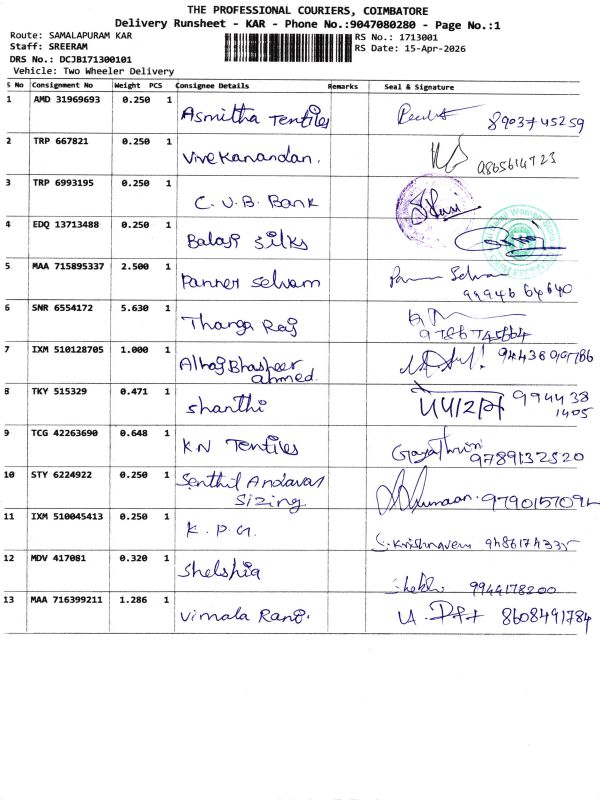 THE PROFESSIONAL COURIERS, COIMBATORE
Delivery Runsheet - KAR - Phone No.:9047080280 - Page No.:1
Route: SAMALAPURAM KAR
RS No.: 1713001
Staff: SREERAM
RS Date: 15-Apr-2026
DRS No.: DCJB171300101
Vehicle: Two Wheeler Delivery
S No Consignment No Weight PCS Consignee Details Remarks Seal & Signature
1 AMD 31969693 0.250 1 Asmitha Textiles 8903745259
2 TRP 667821 0.250 1 Vivekanandan.
3 TRP 6993195 0.250 1 C.U.B. Bank
4 EDQ 13713488 0.250 1 Balaji Silks
5 MAA 715895337 2.500 1 Panner Selvam
99946 64640
6 SNR 6554172 5.630 1 Thanga Raj
7 IXM 510128705 1.000 1 Alhaj Bhasheer
ahmed.
8 TKY 515329 0.471 1 shanthi 994438
1405
9 TCG 42263690 0.648 1 KN Textiles Gayathri
9789132520
10 STY 6224922 0.250 1 Senthil Andavar
Sizing
11 IXM 510045413 0.250 1 K.P.G. S.Krishnaveni
12 MDV 417081 0.320 1 Shelshia 9944178200
13 MAA 716399211 1.286 1 Vimala Rani. 8608491784